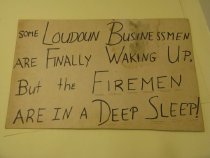 SOME LOUDOUN BUSINESSMEN
ARE FINALLY WAKING UP.
BUT the FIREMEN
ARE IN A DEEP SLEEP!